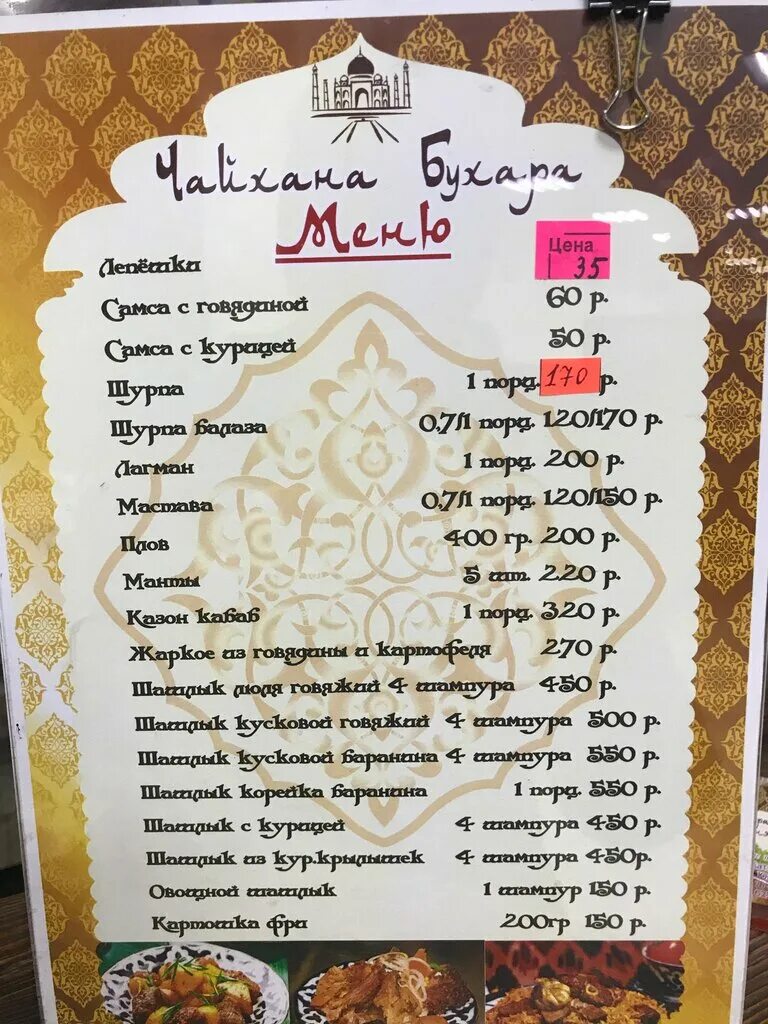 Чайхана Бухара
Меню
Цена
Лепёшки 35
Самса с говядиной 60 р.
Самса с курицей 50 р.
Шурпа 1 порц. 170 р.
Шурпа балаза 0,7/1 порц. 120/170 р.
Лагман 1 порц. 200 р.
Мастава 0,7/1 порц. 120/150 р.
Плов 400 гр. 200 р.
Манты 5 шт. 220 р.
Казон кабаб 1 порц. 320 р.
Жаркое из говядины и картофеля 270 р.
Шашлык люля говяжий 4 шампура 450 р.
Шашлык кусковой говяжий 4 шампура 500 р.
Шашлык кусковой баранина 4 шампура 550 р.
Шашлык корейка баранина 1 порц. 550 р.
Шашлык с курицей 4 шампура 450 р.
Шашлык из кур.крылышек 4 шампура 450р.
Овощной шашлык 1 шампур 150 р.
Картошка фри 200гр 150 р.